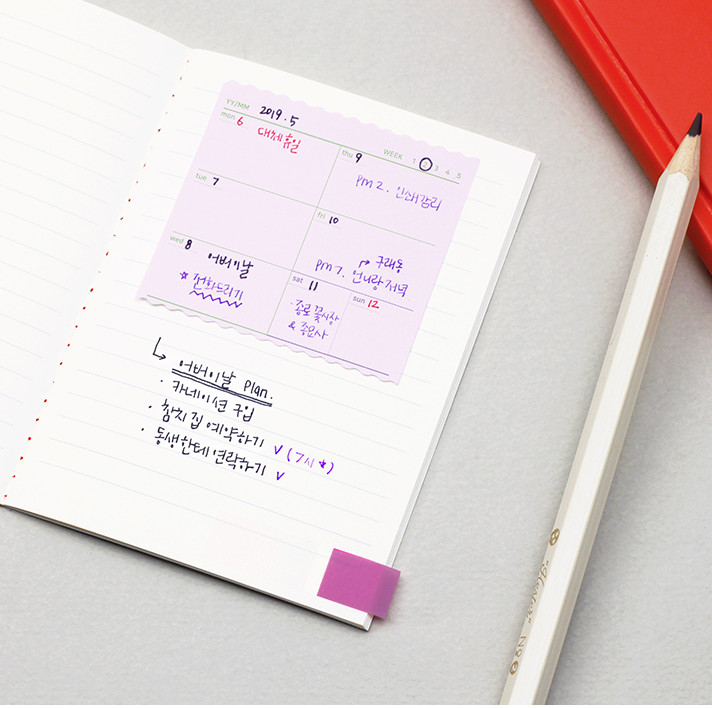 YY/MM 2019.5
mon 6 대체휴일
thu 9 WEEK 1 2 3 4 5
pm 2. 인쇄감리
tue 7
fri 10
→ 구래동
pm 7. 언니랑 저녁
wed 8 어버이날
* 전화드리기
sat 11
· 종로 꽃시장
& 종묘사
sun 12
↳ 어버이날 plan.
· 카네이션 구입
· 참치집 예약하기 ✓ (7시 ★)
· 동생한테 연락하기 ✓
No